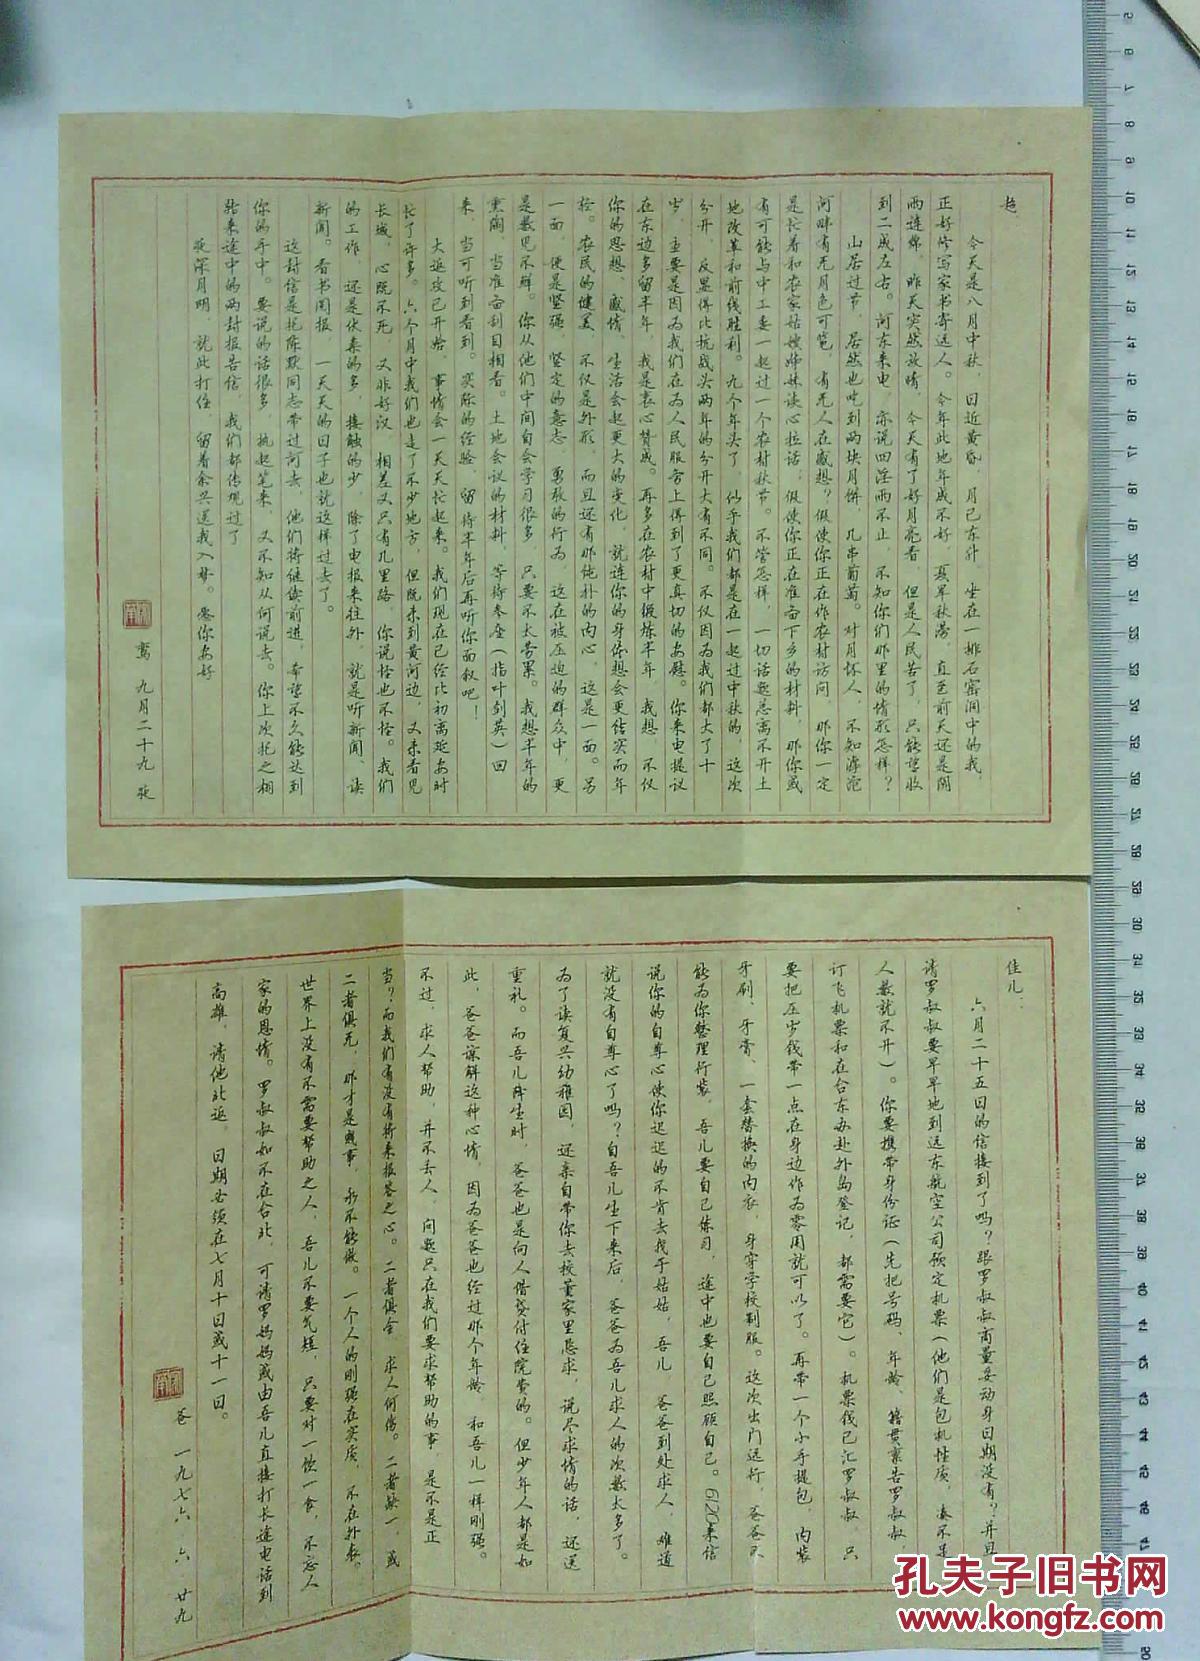 超：
今天是八月中秋，日近黄昏，月已东升，坐在一排石窑洞中的我，
正好修写家书寄远人。今年此地年成不好，夏旱秋涝，直至前天还是阴
雨连绵，昨天突然放晴，今天有了好月亮看，但是人民苦了，只能望收
到二成左右。河东来电，亦说四淫雨不止，不知你们那里的情形怎样？
山居过节，居然也吃到两块月饼，几串葡萄。对月怀人，不知滹沱
河畔有无月色可览，有无人在感想？假使你正在作农村访问，那你一定
是忙着和农家姑嫂姊妹谈心拉话；假使你正在准备下乡的材料，那你或
有可能与中工委一起过一个农村秋节。不管怎样，一切话题总离不开土
地改革和前线胜利。九个年头了，似乎我们都是在一起过中秋的，这次
分开，反显得比抗战头两年的分开大有不同。不仅因为我们都大了十
岁，主要是因为我们在为人民服务上得到了更真切的安慰。你来电提议
在东边多留半年，我是衷心赞成。再多在农村中锻炼半年，我想，不仅
你的思想、感情、生活会起更大的变化，就连你的身体想会更结实而年
轻。农民的健美，不仅是外形，而且还有那纯朴的内心，这是一面。另
一面，便是坚强，坚定的意志，勇敢的行为，这在被压迫的群众中，更
是数见不鲜。你从他们中间自会学习很多，只要不太劳累。我想半年的
熏陶，当准备刮目相看。土地会议的材料，等待叁座（指叶剑英）回
来，当可听到看到。实际的经验，留待半年后再听你面叙吧！
大返攻已开始，事情会一天天忙起来。我们现在已经比初离延安时
长了许多。六个月中我们也走了不少地方，但既未到黄河边，又未看见
长城，心既不死，又非好汉，相差又只有几里路，你说怪也不怪。我们
的工作，还是伏案的多，接触的少，除了电报来往外，就是听新闻、读
新闻。看书阅报，一天天的日子也就这样过去了。
这封信是托陈默同志带过河去，他们将继续前进，希望不久能达到
你的手中。要说的话很多，执起笔来，又不知从何说去。你上次托之相
路来途中的两封报告信，我们都传观过了
夜深月明，就此打住，留着余兴送我入梦。愿你安好
鸾 九月二十九 夜
佳儿：
六月二十五日的信接到了吗？跟罗叔叔商量妥动身日期没有？并且
请罗叔叔要早早地到远东航空公司预定机票（他们是包机性质，凑不足
人数就不开）。你要携带身份证（先把号码、年龄、籍贯禀告罗叔叔，
订飞机票和在台东办赴外岛登记，都需要它）。机票钱已汇罗叔叔，只
要把压岁钱带一点在身边作为零用就可以了。再带一个小手提包，内装
牙刷、牙膏、一套替换的内衣，身穿学校制服。这次出门远行，爸爸不
能为你整理行装，吾儿要自己练习，途中也要自己照顾自己。6120来信
说你的自尊心使你迟迟的不肯去找于姑姑，吾儿，爸爸到处求人，难道
就没有自尊心了吗？自吾儿生下来后，爸爸为吾儿求人的次数太多了。
为了读复兴幼稚园，还亲自带你去校董家里恳求，说尽求情的话，还送
重礼。而吾儿降生时，爸爸也是向人借贷付住院费的。但少年人都是如
此，爸爸谅解这种心情，因为爸爸也经过那个年龄，和吾儿一样刚强。
不过，求人帮助，并不丢人，问题只在我们要求帮助的事，是不是正
当？而我们有没有将来报答之心。二者俱全，求人何伤。二者缺一，或
二者俱无，那才是贱事，永不能做。一个人的刚强在实质，不在外表。
世界上没有不需要帮助之人，吾儿不要气短，只要对一饮一食，不忘人
家的恩情。罗叔叔如不在台北，可请罗妈妈或由吾儿直接打长途电话到
高雄，请他北返。日期必须在七月十日或十一日。
爸 一九七六、六、廿九
孔夫子旧书网
www.kongfz.com